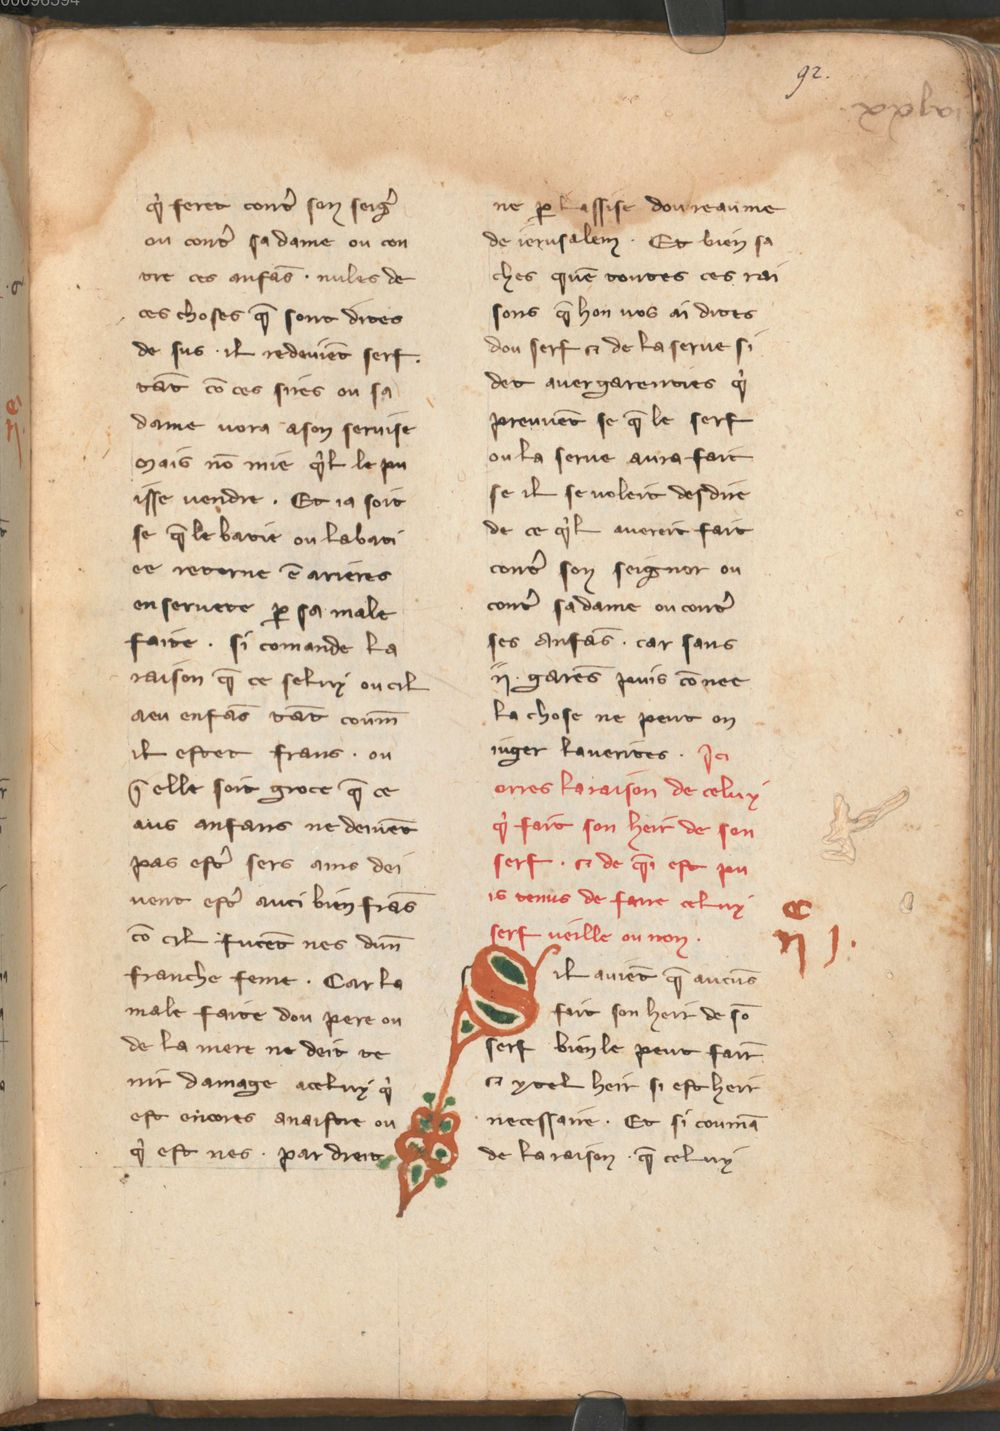 92.
q̓ feret contr̓ son seigr̓
ou contr̓ sa dame ou con
tre ces anfãs · nules de
ces choses q̃ sont dites
de sus · il redeuiẽt serf.
tãt cõ ces sires ou sa
dame uora ason seruise
Mais nõ mie q̓l le pu
isse uendre . Et ia soit
se q̃ le batie ou la bati
ee retorne ẽ arieres
en seruete ꝑ sa male
faite . si comande la
raison q̃ ce seluy ou cil
a eu enfãs tãt coum̃
il estet frans . ou
q̃ elle soit groce q̃ ce
aus anfans ne deiuẽt
pas estr̓ sers ains dei
uent estr̓ auci bien frãs
cõ cil fucẽt nes dun̄
franche feme . Car la
male faite dou pere ou
de la mere ne deit te
nir damage a celuy q̓
est encores a naistre ou
q̓ est nes . par dreit
ne ꝑ lassise dou reaume
de ierusalem . Et bien sa
ches quẽ toutes ces rai
sons q̃ hon uos ai dites
dou serf ci de la serue si
det auer garenties q̓
preuuẽt se q̃ le serf
ou la serue aura fait
se il se uoleit desdire
de ce q̓l auereit fait
contr̓ son seignor ou
contr̓ sa dame ou contr̓
ses anfãs . car sans
ij . garẽs puis cõ nee
la chose ne peut on
iuger la uerites . Ici
orres la raison de celuy
q̓ fait son heir de son
serf . ci de q̃i est pu
is tenus de faire celuy
serf ueille ou non .
S il auiẽt q̃ aucũs
fait son heir de sõ
serf bien le peut fair̃
ci ytel heir si est heir
necessaire . Et si coumã
de la raison . q̃ celuy